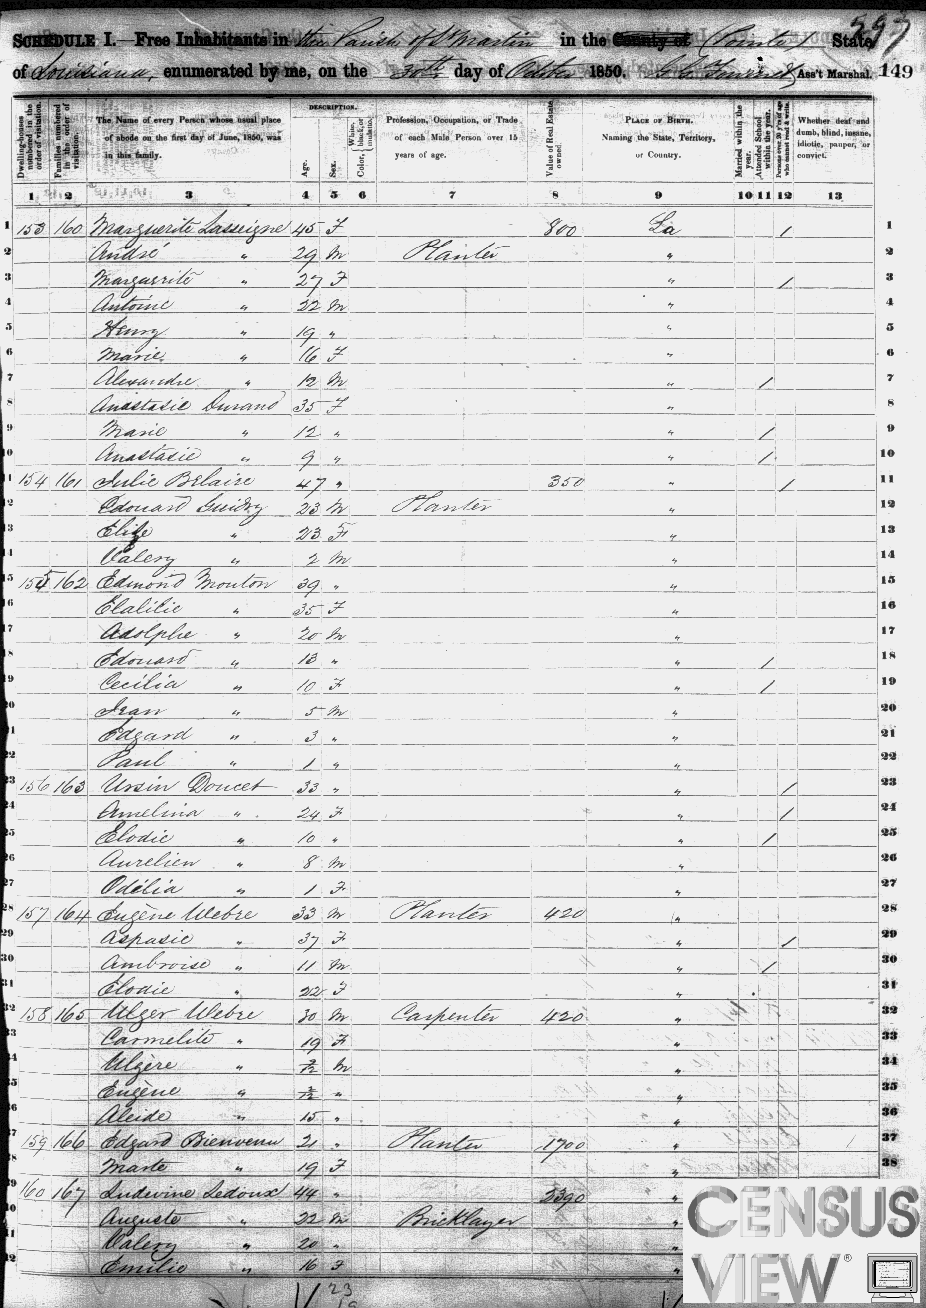 297
SCHEDULE I.—Free Inhabitants in the Parish of St Martin in the County of State
of Louisiana, enumerated by me, on the 30th day of October 1850. Ass't Marshal. 149
Dwelling-houses numbered in the order of visitation. Families numbered in the order of visitation. The Name of every Person whose usual place of abode on the first day of June, 1850, was in this family. DESCRIPTION. Age. Sex. Color, { White, black, or mulatto. Profession, Occupation, or Trade of each Male Person over 15 years of age. Value of Real Estate owned. PLACE OF BIRTH. Naming the State, Territory, or Country. Married within the year. Attended School within the year. Persons over 20 y'rs of age who cannot read & write. Whether deaf and dumb, blind, insane, idiotic, pauper, or convict.
1 2 3 4 5 6 7 8 9 10 11 12 13
1 153 160 Marguerite Lasseigne 45 F 800 La / 1
2 André " 29 M Planter " 2
3 Marguerite " 27 F " / 3
4 Antoine " 22 M " 4
5 Henry " 19 " " 5
6 Marie " 16 F " 6
7 Alexandre " 12 M " / 7
8 Anastasie Durand 35 F " 8
9 Marie " 12 " " / 9
10 Anastasie " 9 " " / 10
11 154 161 Julie Belaire 47 " 350 " / 11
12 Edouard Guidry 23 M Planter " 12
13 Elize " 23 F " 13
14 Valery " 2 M " 14
15 155 162 Edmond Mouton 39 " " 15
16 Elalilie " 35 F " 16
17 Adolphe " 20 M " 17
18 Edouard " 13 " " / 18
19 Cecilia " 10 F " / 19
20 Jean " 5 M " 20
21 Edgard " 3 " " 21
22 Paul " 1 " " 22
23 156 163 Ursin Doucet 33 " " / 23
24 Amelina " 24 F " / 24
25 Elodie " 10 " " / 25
26 Aurelien " 8 M " 26
27 Odélia " 1 F " 27
28 157 164 Eugène Webre 33 M Planter 420 " 28
29 Aspasie " 37 F " / 29
30 Ambroise " 11 M " / 30
31 Elodie " 22 F " 31
32 158 165 Ulger Webre 30 M Carpenter 420 " 32
33 Carmelite " 19 F " 33
34 Ulgère " M " 34
35 Eugène " " " 35
36 Aleide " 15 " " 36
37 159 166 Edgard Bienvenu 21 " Planter 1700 " 37
38 Marte " 19 F " 38
39 160 167 Ludevine Ledoux 44 " 2390 "
Auguste " 22 M Bricklayer "
41 Valery " 20 " "
Emilie " 16 F
23
CENSUS
VIEW ®